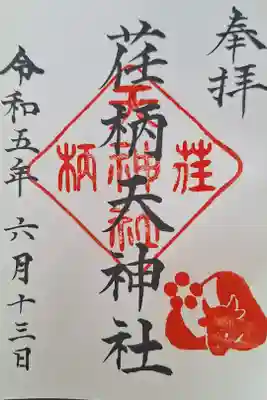 奉拝
荏柄天神社
令和五年 六月十三日
荏柄
天神社